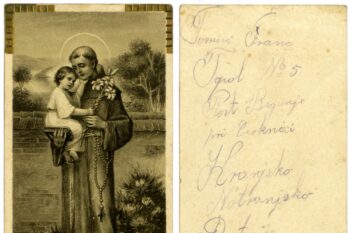 Tomšič Franc
Igrol № 5
Post Begunje
pri Cerknici
Kranjsko
Notranjsko